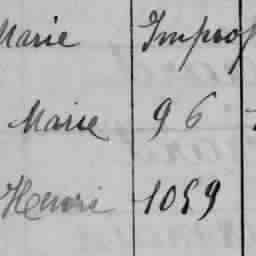 Marie Improf
Marie 96
Henri 1059